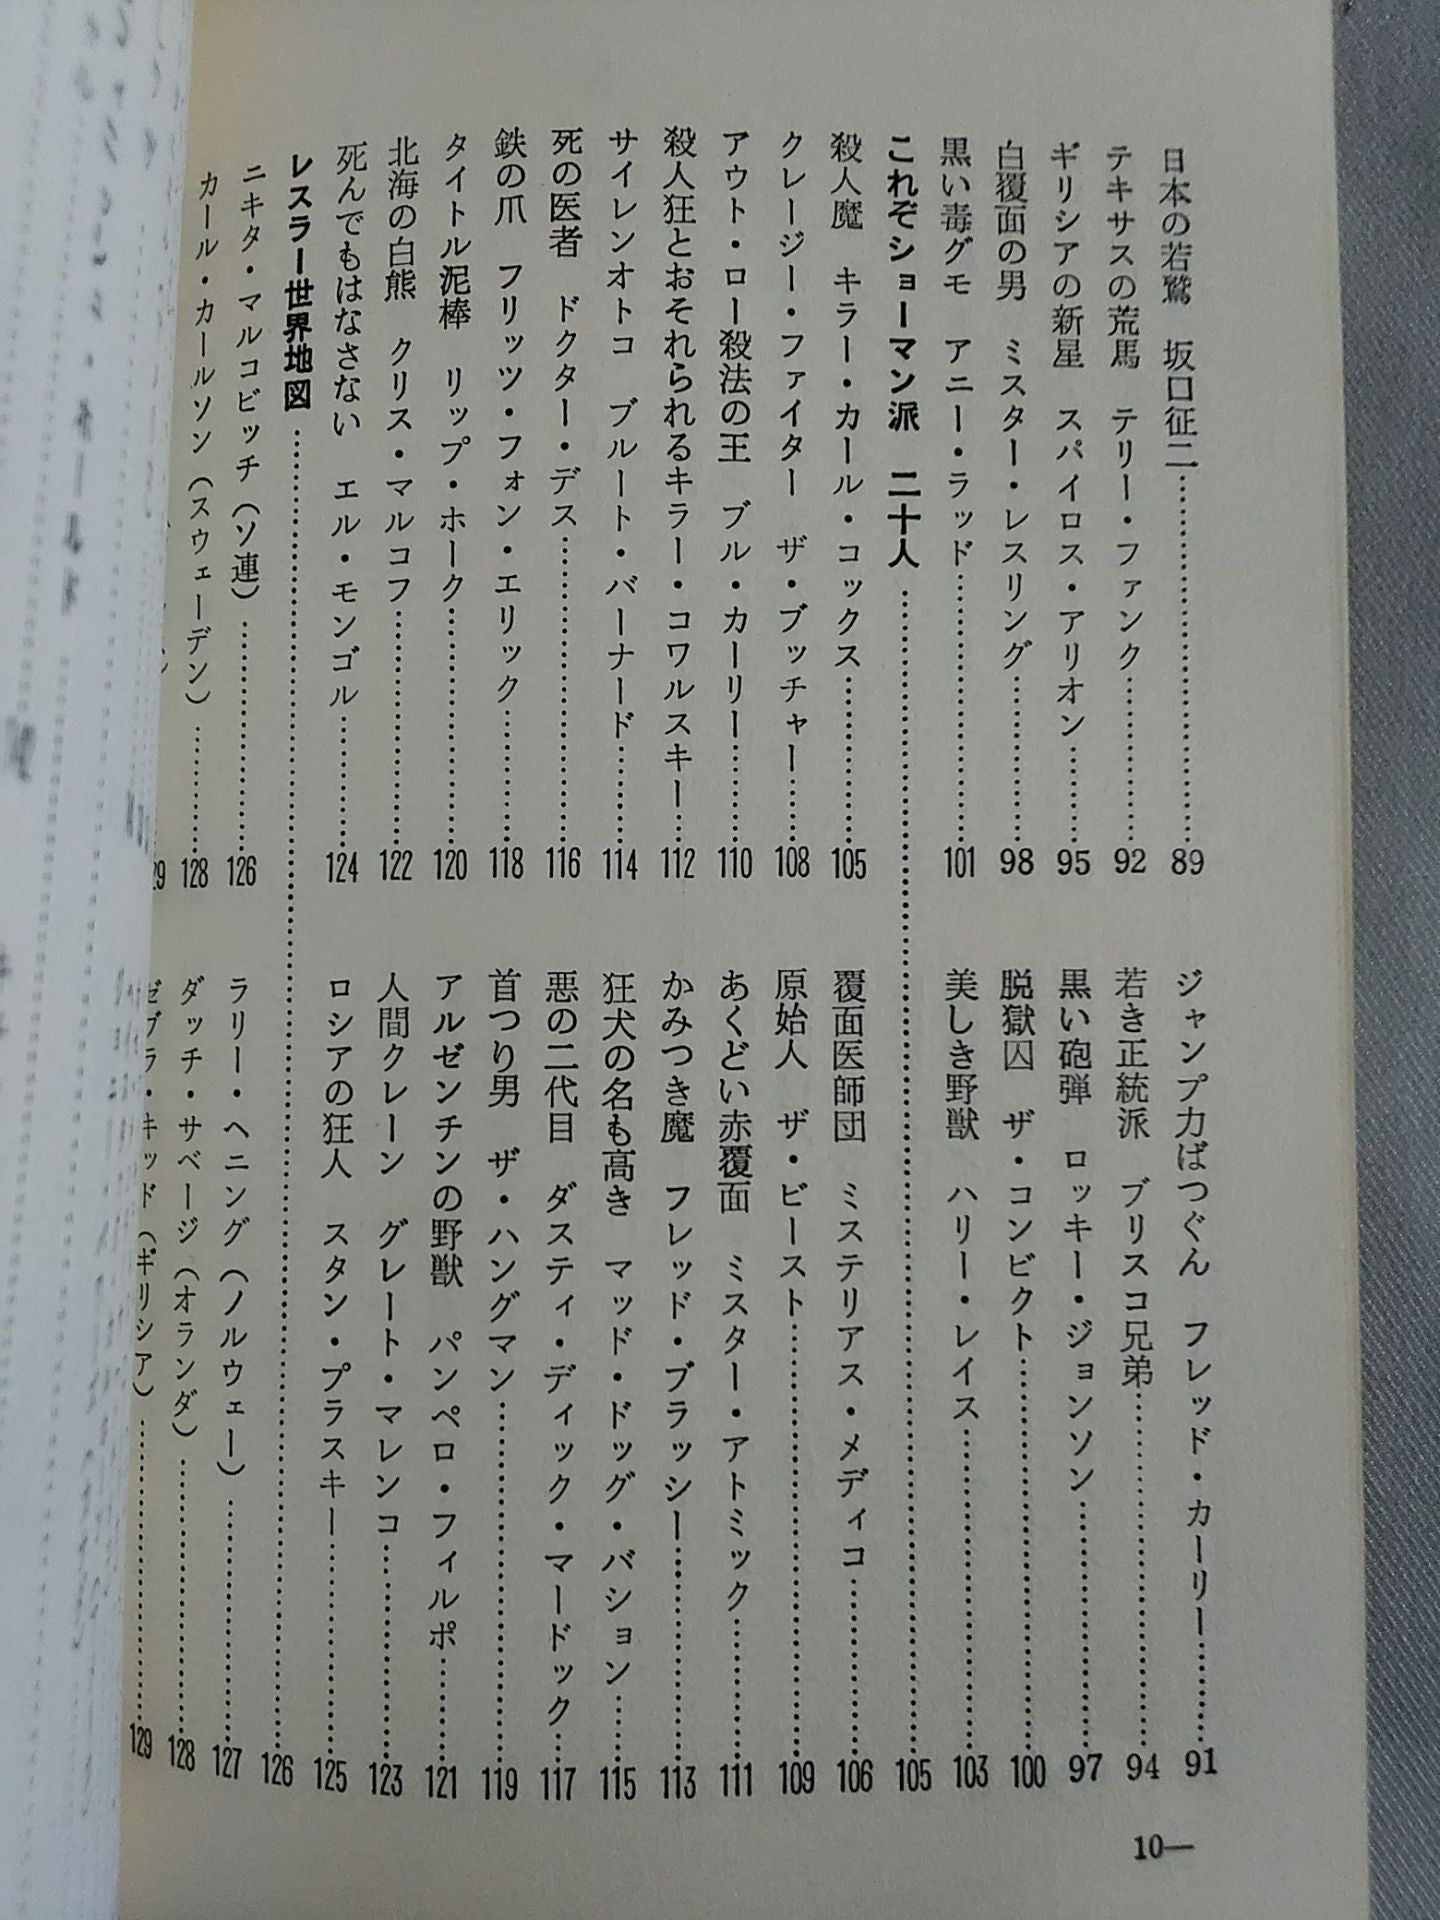 日本の若鷲　坂口征二……………89
ジャンプ力ばつぐん　フレッド・カーリー……………91
テキサスの荒馬　テリー・ファンク……………92
若き正統派　ブリスコ兄弟……………94
ギリシアの新星　スパイロス・アリオン……………95
黒い砲弾　ロッキー・ジョンソン……………97
白覆面の男　ミスター・レスリング……………98
脱獄囚　ザ・コンビクト……………100
黒い毒グモ　アニー・ラッド……………101
美しき野獣　ハリー・レイス……………103
これぞショーマン派　二十人……………105
殺人魔　キラー・カール・コックス……………105
覆面医師団　ミステリアス・メディコ……………106
クレージー・ファイター　ザ・ブッチャー……………108
原始人　ザ・ビースト……………109
アウト・ロー殺法の王　ブル・カーリー……………110
あくどい赤覆面　ミスター・アトミック……………111
殺人狂とおそれられるキラー・コワルスキー……………112
かみつき魔　フレッド・ブラッシー……………113
サイレンオトコ　ブルート・バーナード……………114
狂犬の名も高き　マッド・ドッグ・バション……………115
死の医者　ドクター・デス……………116
悪の二代目　ダスティ・ディック・マードック……………117
鉄の爪　フリッツ・フォン・エリック……………118
首つり男　ザ・ハングマン……………119
タイトル泥棒　リップ・ホーク……………120
アルゼンチンの野獣　パンペロ・フィルポ……………121
北海の白熊　クリス・マルコフ……………122
人間クレーン　グレート・マレンコ……………123
死んでもはなさない　エル・モンゴル……………124
ロシアの狂人　スタン・プラスキー……………125
レスラー世界地図……………126
ニキタ・マルコビッチ（ソ連）……………126
ラリー・ヘニング（ノルウェー）……………127
カール・カールソン（スウェーデン）……………128
ダッチ・サベージ（オランダ）……………128
ゼブラ・キッド（ギリシア）……………129
10—